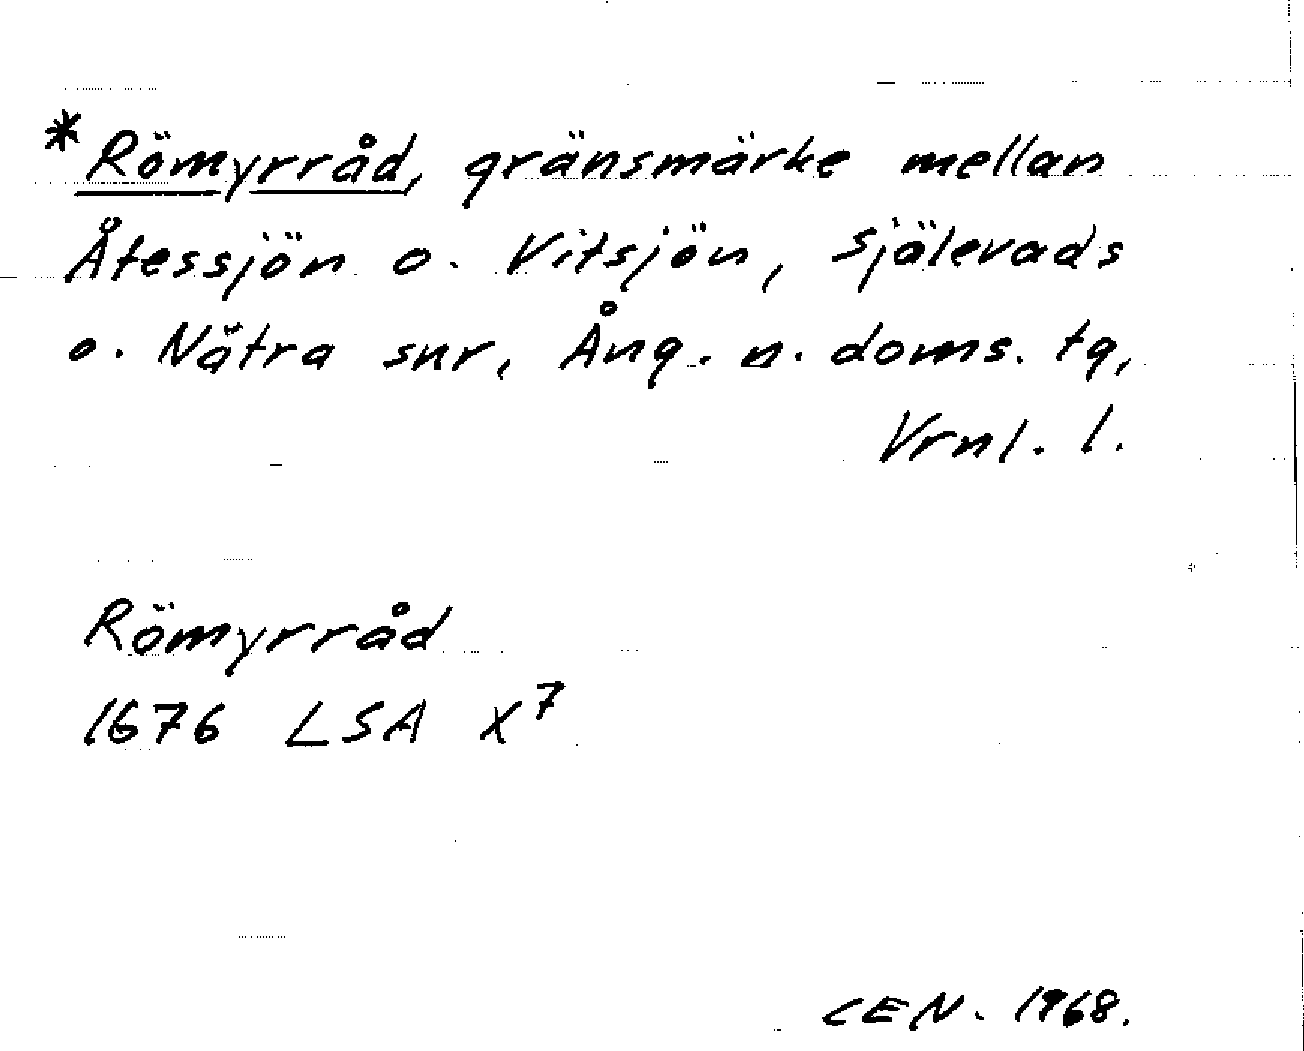 *Römyrråd, gränsmärke mellan
Åtessjön o. Vitsjön, Själevads
o. Nätra snr, Ång. n. doms. tg,
Vrnl. l.
Römyrråd
1676 LSA X⁷
CEN. 1968.